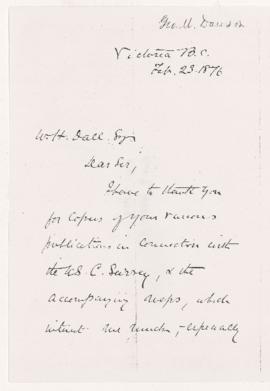 Geo. M. Dawson
Victoria B.C.
Feb. 23. 1876
W. H. Dall. Esq
Dear Sir,
I have to thank you
for copies of your various
publications in connection with
the U.S C. Survey, & the
accompanying maps, which
interest me much, - especially